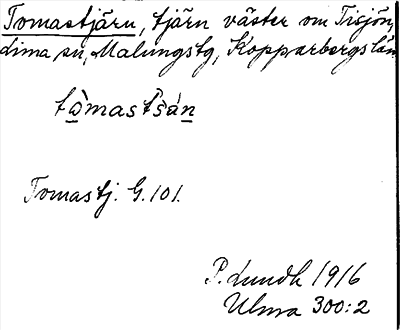 Tomastjärn, tjärn väster om Tisjön,
Lima sn, Malungs tg, Kopparbergs län
tò̲mastšá̲n̲
Tomastj. G. 101.
P. Lundh 1916
Ulma 300:2